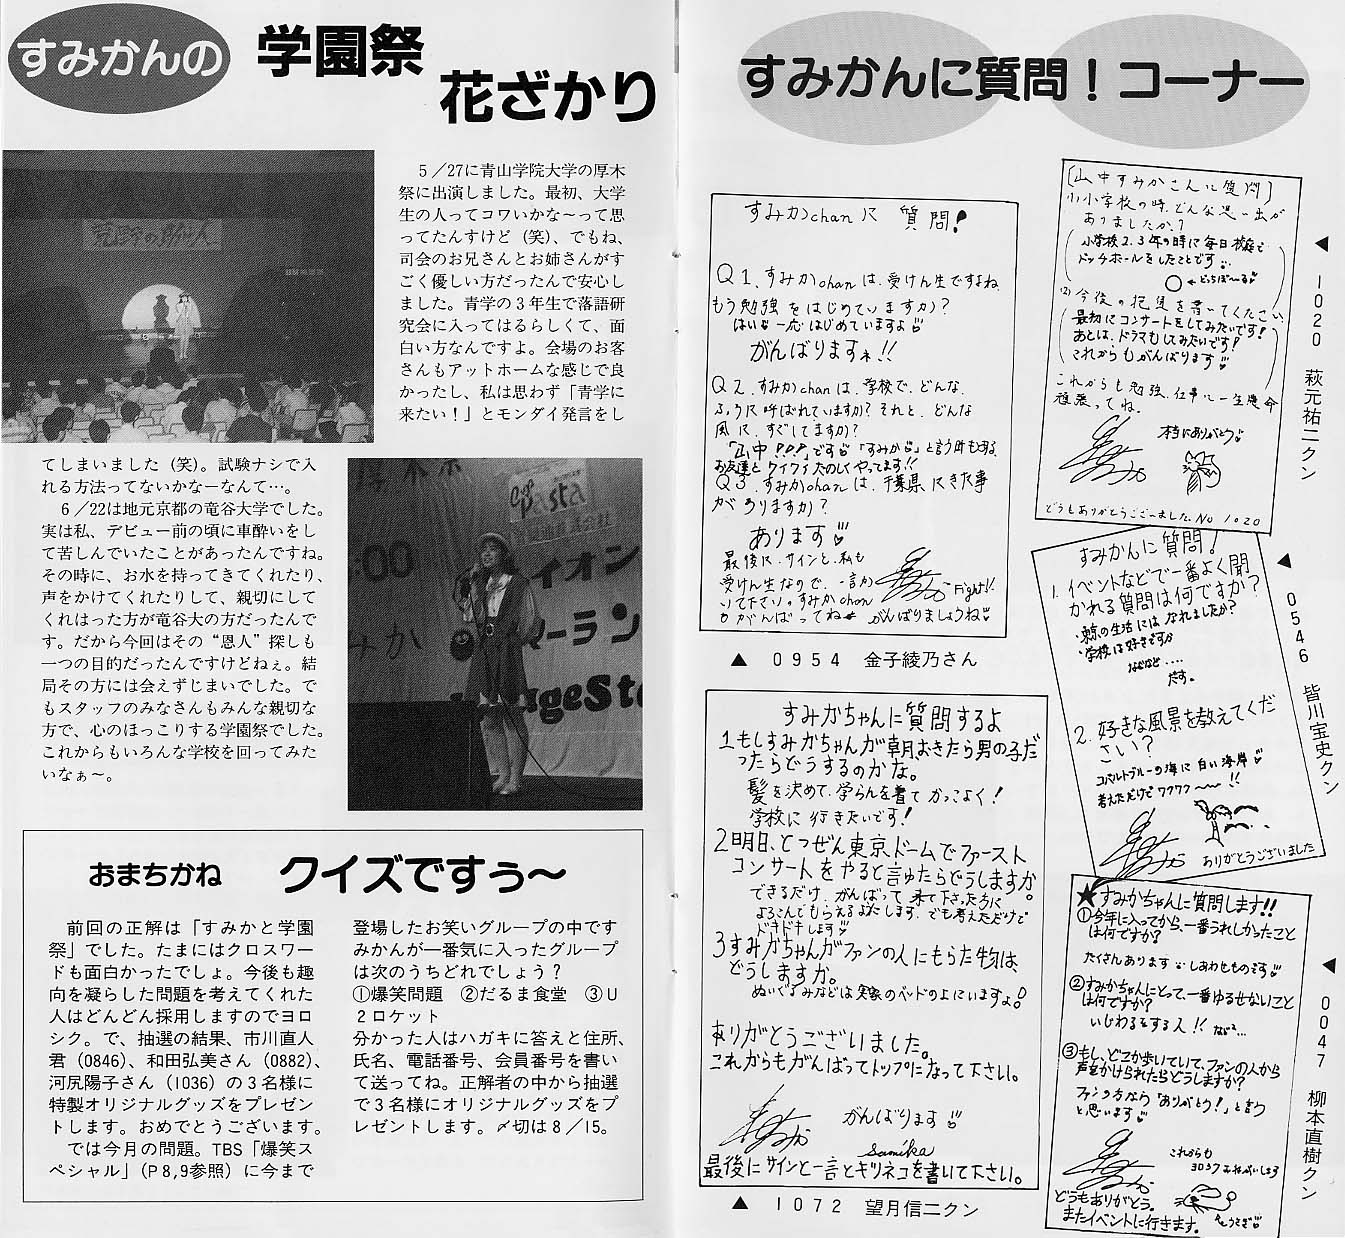 すみかんの 学園祭
花ざかり
5/27に青山学院大学の厚木
祭に出演しました。最初、大学
生の人ってコワいかな～って思
ってたんすけど(笑)、でもね、
司会のお兄さんとお姉さんがす
ごく優しい方だったんで安心し
ました。青学の3年生で落語研
究会に入ってはるらしくて、面
白い方なんですよ。会場のお客
さんもアットホームな感じで良
かったし、私は思わず「青学に
来たい!」とモンダイ発言をし
てしまいました(笑)。試験ナシで入
れる方法ってないかなーなんて…。
6/22は地元京都の竜谷大学でした。
実は私、デビュー前の頃に車酔いをし
て苦しんでいたことがあったんですね。
その時に、お水を持ってきてくれたり、
声をかけてくれたりして、親切にして
くれはった方が竜谷大の方だったんで
す。だから今回はその“恩人”探しも
一つの目的だったんですけどねぇ。結
局その方には会えずじまいでした。で
もスタッフのみなさんもみんな親切な
方で、心のほっこりする学園祭でした。
これからもいろんな学校を回ってみた
いなぁ～。
Cup
Pasta
:00
みか
イオン
ーラン
geSt
おまちかね クイズですぅ～
前回の正解は「すみかと学園
祭」でした。たまにはクロスワー
ドも面白かったでしょ。今後も趣
向を凝らした問題を考えてくれた
人はどんどん採用しますのでヨロ
シク。で、抽選の結果、市川直人
君(0846)、和田弘美さん(0882)、
河尻陽子さん(1036)の3名様に
特製オリジナルグッズをプレゼン
トします。おめでとうございます。
では今月の問題。TBS「爆笑ス
ペシャル」(P8,9参照)に今まで
登場したお笑いグループの中です
みかんが一番気に入ったグループ
は次のうちどれでしょう?
①爆笑問題 ②だるま食堂 ③U
2ロケット
分かった人はハガキに答えと住所、
氏名、電話番号、会員番号を書い
て送ってね。正解者の中から抽選
で3名様にオリジナルグッズをプ
レゼントします。〆切は8/15。
すみかんに質問!コーナー
すみかchanに 質問!
Q1、すみかchanは、受けん生ですよね
もう勉強をはじめていますか?
はい 一応はじめていますよ
がんばりますね!!
Q2、すみかchanは、学校で、どんな
ふうに呼ばれていますか?それと、どんな
風に、すごしてますか?
Q3、すみかchanは、千葉県にきた事
がありますか?
あります
最後に、サインと、私も
受けん生なので、一言か
いて下さい。すみかchan
もがんばってね
Fight!!
がんばりましょうね
▲ 0954 金子綾乃さん
すみかちゃんに質問するよ
1もしすみかちゃんが朝、おきたら男の子だ
ったらどうするのかな。
髪を決めて、学らんを着て かっこよく!
学校に 行きたいです!
2明日、とつぜん東京ドームでファースト
コンサートをやると言ゅたらどうしますか。
できるだけ、がんばって 来て下さった方に
よろこんでもらえるようにします。でも考えただけで
ドキドキします
3すみかちゃんがファンの人にもらた物は、
どうしますか。
ぬいぐるみなどは実家のベッドの上にいますよ
ありがとうございました。
これからもがんばってトップになって下さい。
がんばります
Sumika
最後にサインと一言とキリネコを書いて下さい。
▲ 1072 望月信二クン
[山中すみかさんに質問]
(1)小学校の時、どんな思い出が
ありましたか?
小学校2、3年の時に毎日校庭で
ドッチボールをしたことです
←どっちぼ〜る
(2)今後の抱負を書いてください。
最初にコンサートをしてみたいです!
あとは、ドラマもしてみたいです!
これからもがんばります
これからも勉強、仕事に一生懸命
頑張ってね。
本当にありがとう
どうもありがとうございました。No 1020
◀ 1020 萩元祐二クン
すみかんに質問!
1. イベントなどで一番よく聞
かれる質問は何ですか?
・東京の生活には なれましたか?
・学校は好きですか
などなど....
です。
2. 好きな風景を教えてくだ
さい?
コバルトブルーの海に 白い海岸
考えただけで ワクワク〜 !!
ありがとうございました
◀ 0546 皆川宝史クン
★すみかちゃんに質問します!!
①今年に入ってから、一番うれしかったこと
は何ですか?
たくさんあります しあわせものです
②すみかちゃんにとって、一番ゆるせないこと
は何ですか?
いじわるをする人!! など...
③もし、どこか歩いていて、ファンの人から
声をかけられたらどうしますか?
ファンの方なら「ありがとう!」と言う
と思います
これからも
ヨロシクおねがいします
どうもありがとう。
またイベントに行きます。
◀ 0047 柳本直樹クン